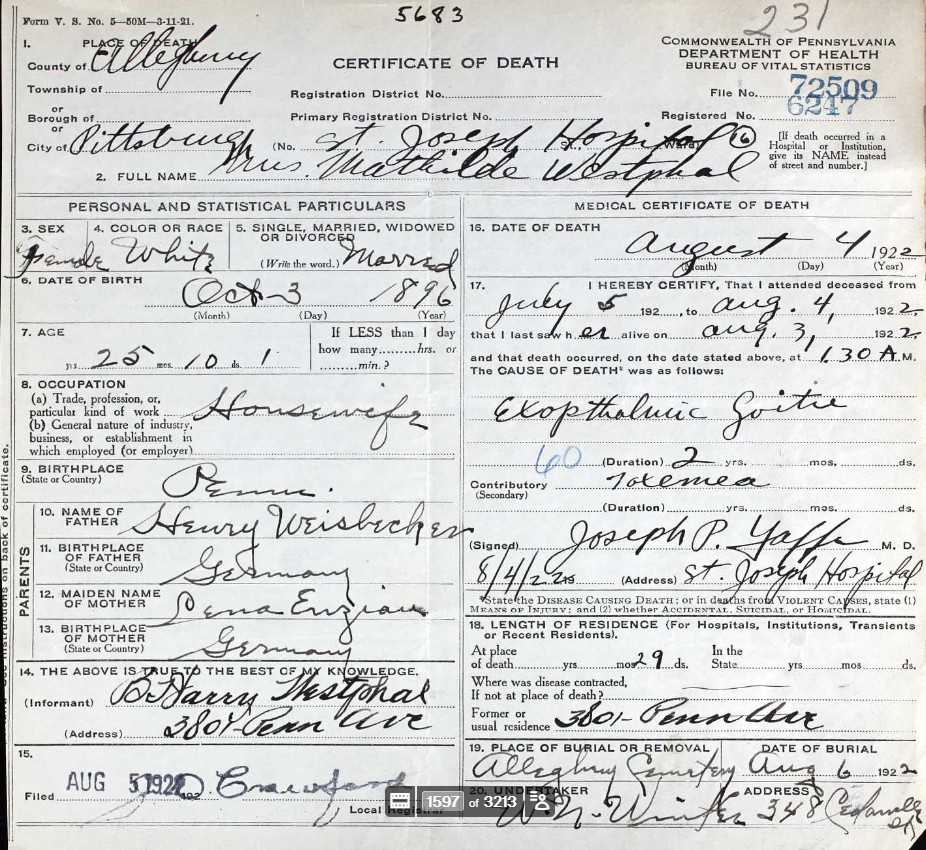 Form V. S. No. 5—50M—3-11-21.
5683
231
1. PLACE OF DEATH
County of Allegheny
CERTIFICATE OF DEATH
COMMONWEALTH OF PENNSYLVANIA
DEPARTMENT OF HEALTH
BUREAU OF VITAL STATISTICS
Township of
Registration District No.
File No. 72509
or
Borough of
Primary Registration District No.
Registered No. 6247
or
City of Pittsburgh (No. St. Joseph Hospital St. Ward) 6
[If death occurred in a Hospital or Institution, give its NAME instead of street and number.]
2. FULL NAME Mrs. Mathilde Westphal
PERSONAL AND STATISTICAL PARTICULARS
3. SEX 4. COLOR OR RACE 5. SINGLE, MARRIED, WIDOWED OR DIVORCED
Female White (Write the word.) Married
6. DATE OF BIRTH
Oct 3 1896
(Month) (Day) (Year)
7. AGE
If LESS than 1 day
how many hrs. or
25 yrs. 10 mos. 1 ds. min.?
8. OCCUPATION
(a) Trade, profession, or
particular kind of work Housewife
(b) General nature of industry,
business, or establishment in
which employed (or employer)
9. BIRTHPLACE
(State or Country) Penn.
PARENTS
10. NAME OF FATHER Henry Weisbecker
11. BIRTHPLACE OF FATHER
(State or Country) Germany
12. MAIDEN NAME OF MOTHER Lena Enzian
13. BIRTHPLACE OF MOTHER
(State or Country) Germany
14. THE ABOVE IS TRUE TO THE BEST OF MY KNOWLEDGE.
(Informant) B. Harry Westphal
(Address) 3801-Penn Ave
15.
Filed AUG 5 1922 192 Crawford
Local Registrar
See instructions on back of certificate.
MEDICAL CERTIFICATE OF DEATH
16. DATE OF DEATH
August 4 1922
(Month) (Day) (Year)
17. I HEREBY CERTIFY, That I attended deceased from
July 5 192 , to Aug. 4, 1922.
that I last saw her alive on Aug. 3, 1922.
and that death occurred, on the date stated above, at 1.30 A M.
The CAUSE OF DEATH* was as follows:
Exopthalmic Goitre
60 (Duration) 2 yrs. mos. ds.
Contributory Toxemea
(Secondary)
(Duration) yrs. mos. ds.
(Signed) Joseph P. Yaffe M. D.
8/4/22 (Address) St. Joseph Hospital
*State the DISEASE CAUSING DEATH; or in deaths from VIOLENT CAUSES, state (1)
MEANS OF INJURY; and (2) whether ACCIDENTAL, SUICIDAL, or HOMICIDAL.
18. LENGTH OF RESIDENCE (For Hospitals, Institutions, Transients
or Recent Residents).
At place In the
of death yrs mos 29 ds. State yrs mos ds.
Where was disease contracted,
If not at place of death?
Former or
usual residence 3801- Penn Ave
19. PLACE OF BURIAL OR REMOVAL DATE OF BURIAL
Allegheny Cemetery Aug 6 1922
20. UNDERTAKER ADDRESS
W. N. Winter 348
1597 of 3213